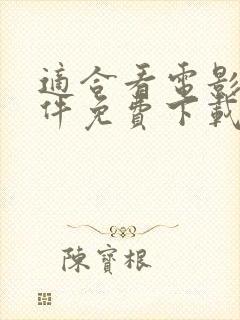 適合看電影
件免費下載
陳寶根